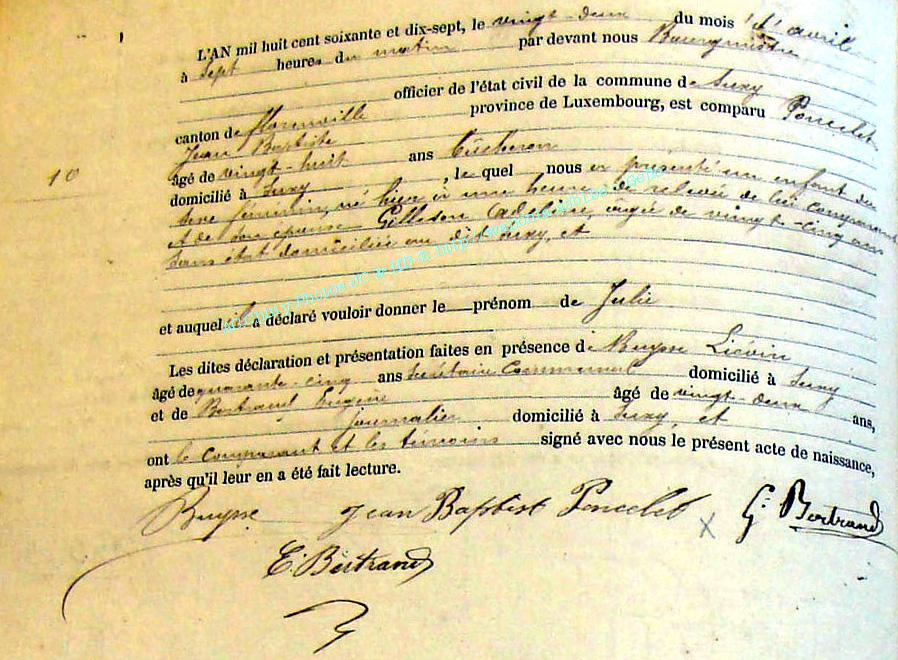 L'AN mil huit cent soixante et dix-sept, le vingt-deux du mois d'avril
à sept heures du matin par devant nous Bourgmestre
officier de l'état civil de la commune de Suxy
canton de Florenville province de Luxembourg, est comparu Poncelet
Jean Baptiste
âgé de vingt-huit ans
domicilié à Suxy, lequel nous a présenté un enfant du
sexe féminin, né hier à une heure de relevée de lui comparant
et de son épouse Gilleson Adeline, âgée de vingt-cinq ans
sans état domiciliée au dit Suxy, et
10
et auquel il a déclaré vouloir donner le prénom de Julie
Les dites déclaration et présentation faites en présence de Buysse Liévin
âgé de quarante-cinq ans Secrétaire Communal domicilié à Suxy
et de Bertrand Eugène âgé de vingt-deux ans,
journalier domicilié à Suxy, et
ont le comparant et les témoins signé avec nous le présent acte de naissance,
après qu'il leur en a été fait lecture.
Buysse Jean Baptist Poncelet X G. Bertrand
E. Bertrand